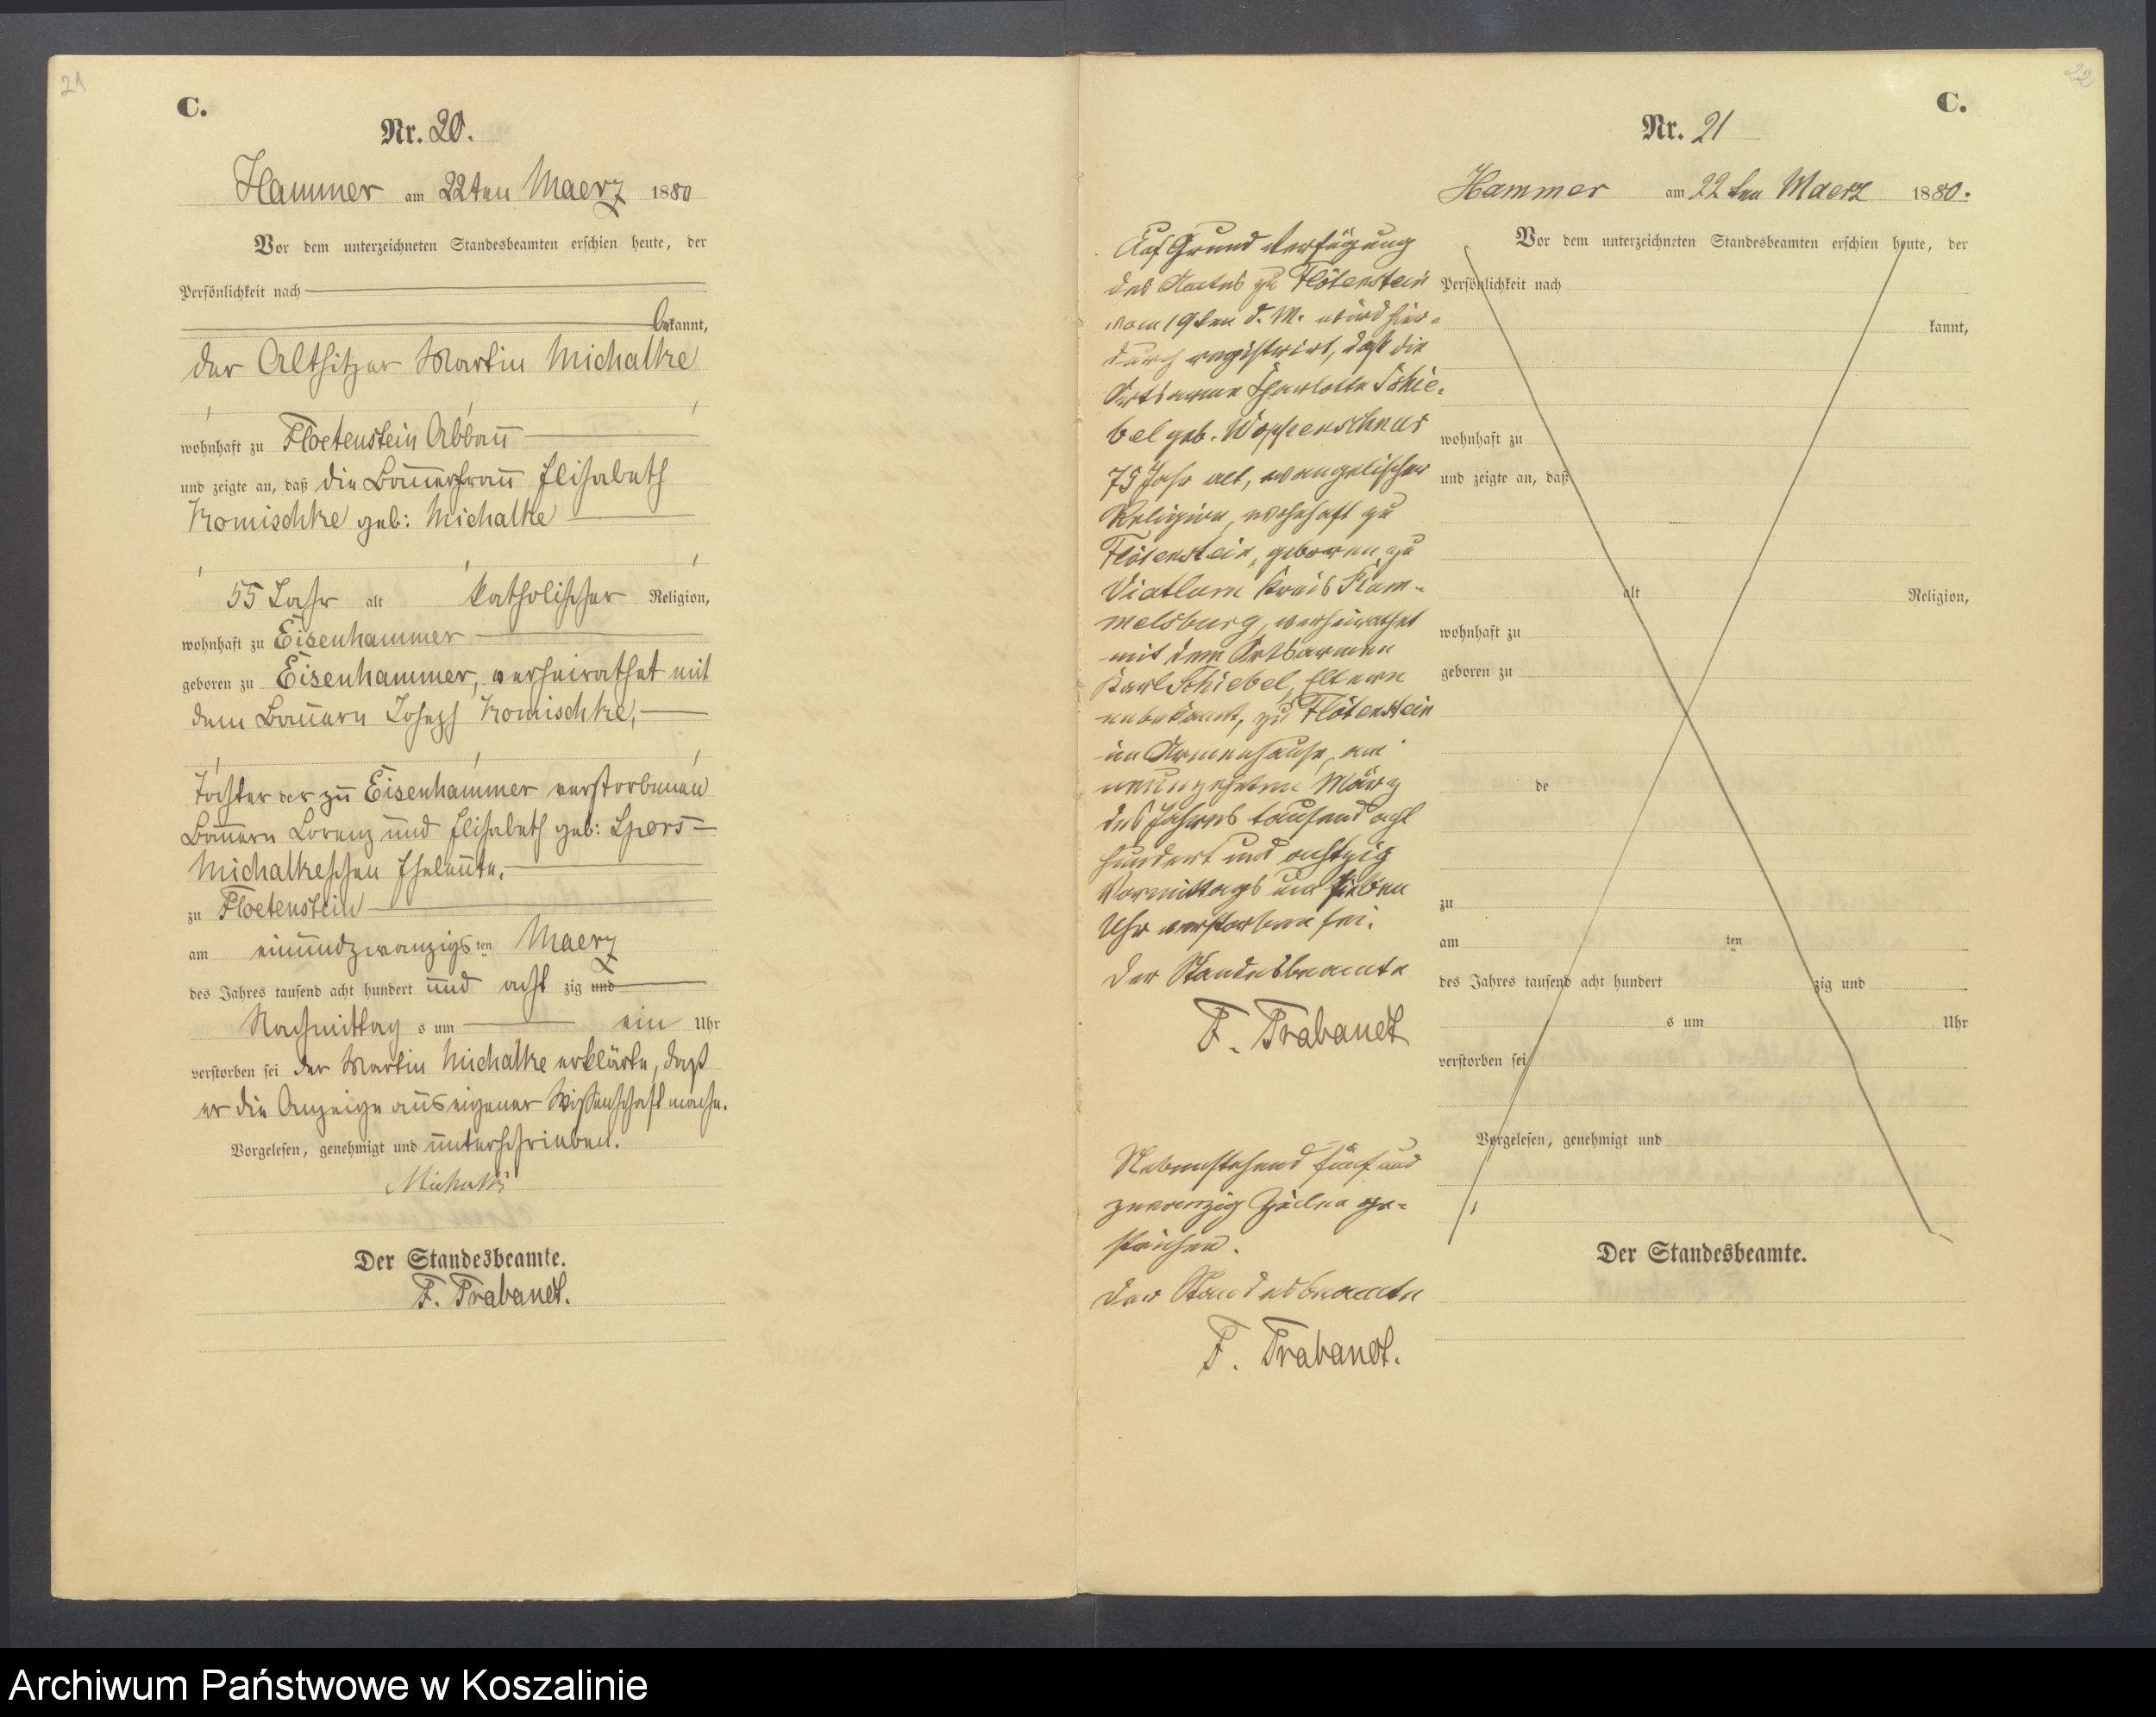 21
C.
Nr. 20.
Hammer am 22ten Maerz 1880
Vor dem unterzeichneten Standesbeamten erschien heute, der
Persönlichkeit nach
bekannt,
der Altsitzer Martin Michalke
wohnhaft zu Floetenstein Abbau
und zeigte an, daß die Bauerfrau Elisabeth
Komischke geb: Michalke
55 Jahr alt katholischer Religion,
wohnhaft zu Eisenhammer
geboren zu Eisenhammer, verheirathet mit
dem Bauern Joseph Komischke,
Tochter der zu Eisenhammer verstorbenen
Bauern Lorenz und Elisabeth geb: Spors-
Michalkeschen Eheleute,
zu Floetenstein
am einundzwanzigsten Maerz
des Jahres tausend acht hundert und acht zig und
Nachmittag s um ein Uhr
verstorben sei der Martin Michalke erklärte, daß
er die Anzeige aus eigener Wissenschaft mache.
Vorgelesen, genehmigt und unterschrieben.
Der Standesbeamte.
F. Trabandt.
22
C.
Nr. 21
Hammer am 22ten Maerz 1880.
Auf Grund Verfügung
des Amtes zu Flötenstein
vom 19ten d. M. wird hier-
durch registrirt, daß die
Ortsarme Charlotte Schie-
bel geb.
75 Jahr alt, evangelischer
Religion, wohnhaft zu
Flötenstein, geboren zu
Viatlum Kreis Rum-
melsburg, verheirathet
mit dem Ortsarmen
Karl Schiebel, Eltern
unbekannt, zu Flötenstein
im Armenhause, am
neunzehnten März
des Jahres tausend acht
hundert und achtzig
Vormittags um sieben
Uhr verstorben sei.
Der Standesbeamte
F. Trabandt
Nebenstehend fünf und
zwanzig Zeilen ge-
strichen.
Der Standesbeamte
F. Trabandt.
Vor dem unterzeichneten Standesbeamten erschien heute, der
Persönlichkeit nach
kannt,
wohnhaft zu
und zeigte an, daß
alt Religion,
wohnhaft zu
geboren zu
de
zu
am ten
des Jahres tausend acht hundert zig und
s um Uhr
verstorben sei
Vorgelesen, genehmigt und
Der Standesbeamte.
Archiwum Państwowe w Koszalinie